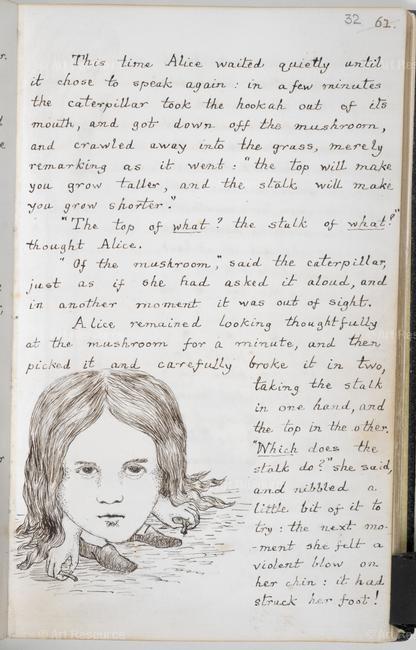 32 61.
This time Alice waited quietly until
it chose to speak again : in a few minutes
the caterpillar took the hookah out of its
mouth, and got down off the mushroom,
and crawled away into the grass, merely
remarking as it went : "the top will make
you grow taller, and the stalk will make
you grow shorter."
"The top of what? the stalk of what?"
thought Alice.
"Of the mushroom," said the caterpillar,
just as if she had asked it aloud, and
in another moment it was out of sight.
Alice remained looking thoughtfully
at the mushroom for a minute, and then
picked it and carefully broke it in two,
taking the stalk
in one hand, and
the top in the other.
"Which does the
stalk do?" she said,
and nibbled a
little bit of it to
try : the next mo-
-ment she felt a
violent blow on
her chin : it had
struck her foot!
Art Resource